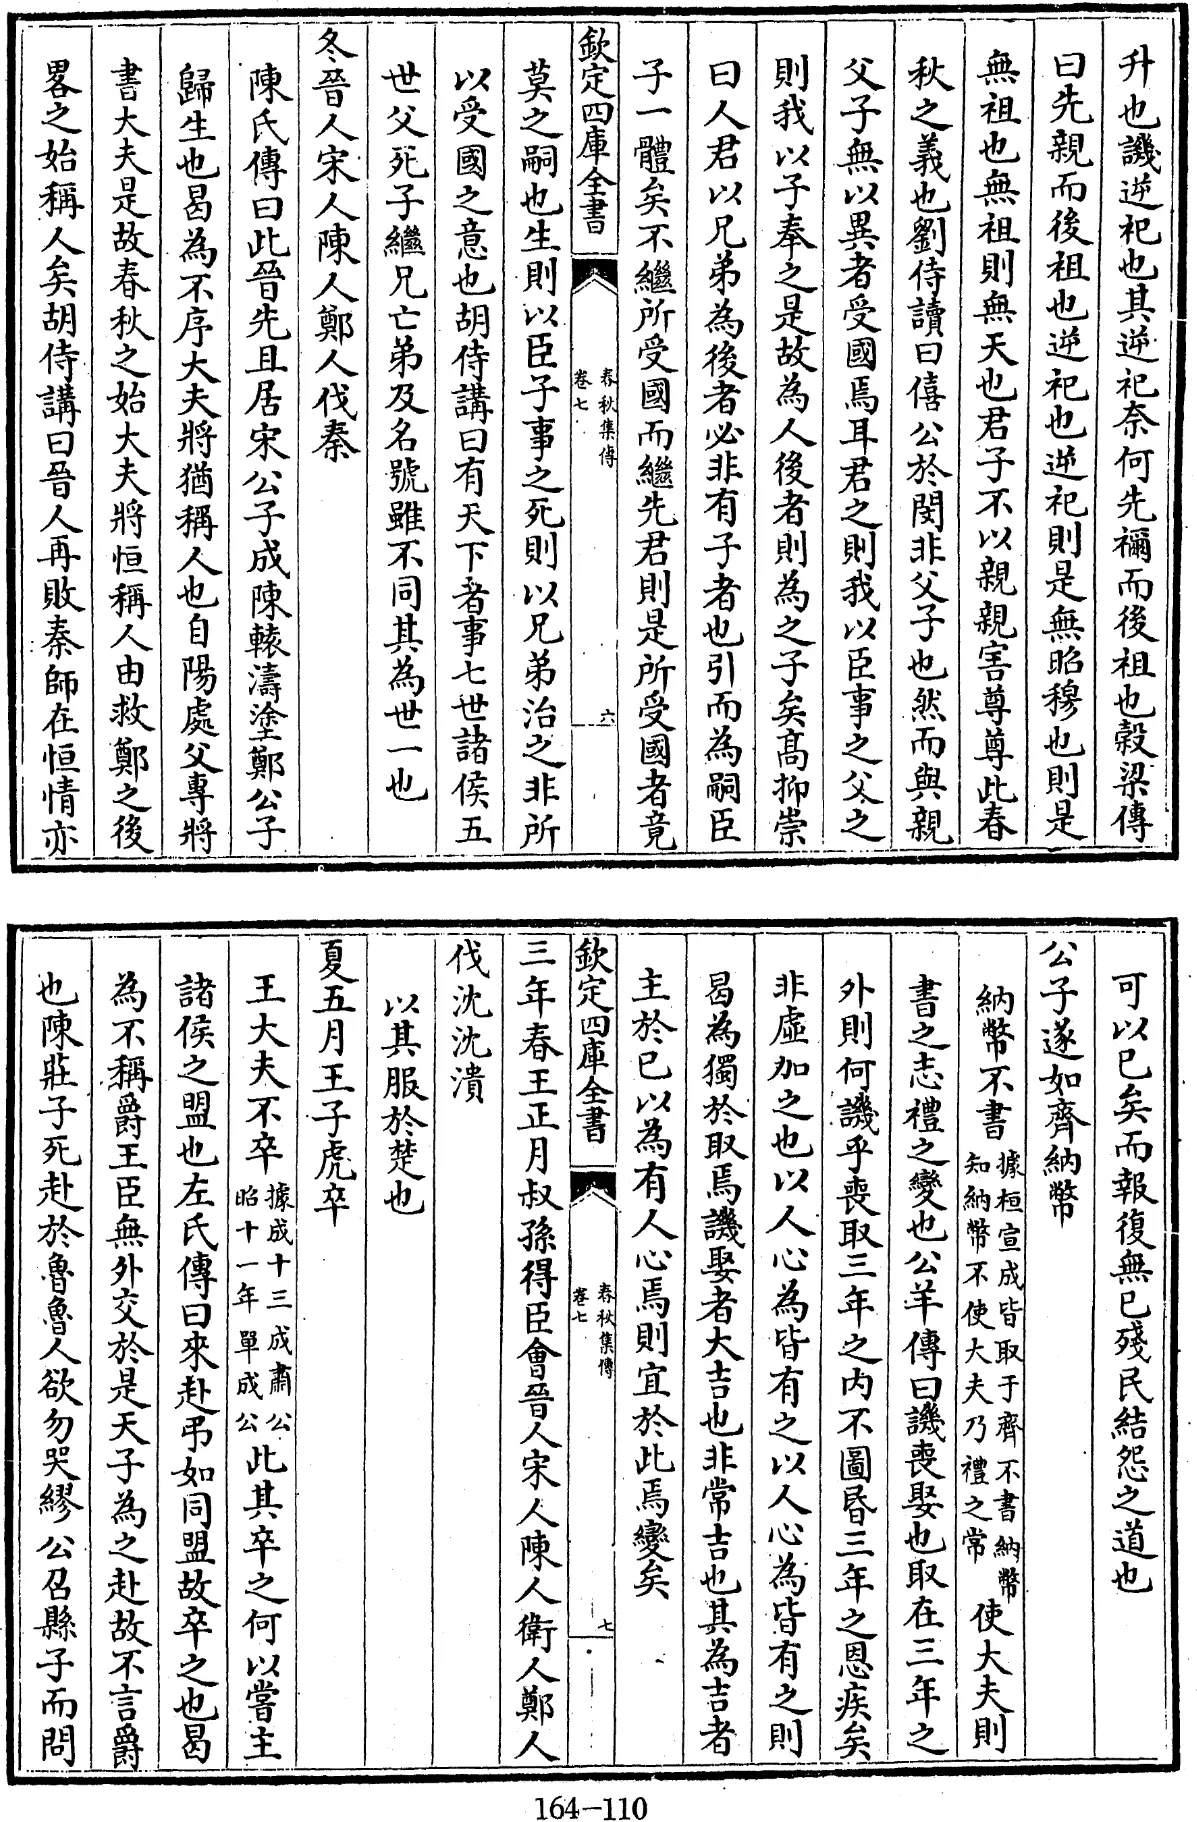 升也譏逆祀也其逆祀奈何先禰而後祖也穀梁傳
曰先親而後祖也逆祀也逆祀則是無昭穆也則是
無祖也無祖則無天也君子不以親親害尊尊此春
秋之義也劉侍讀曰僖公於閔非父子也然而與親
父子無以異者受國焉耳君之則我以臣事之父之
則我以子奉之是故為人後者則為之子矣髙抑崇
曰人君以兄弟為後者必非有子者也引而為嗣臣
子一體矣不繼所受國而繼先君則是所受國者竟
欽定四庫全書
春秋集傳
卷七
六
莫之嗣也生則以臣子事之死則以兄弟治之非所
以受國之意也胡侍講曰有天下者事七世諸侯五
世父死子繼兄亡弟及名號雖不同其為世一也
冬晉人宋人陳人鄭人伐秦
陳氏傳曰此晉先且居宋公子成陳轅濤塗鄭公子
歸生也曷為不序大夫將猶稱人也自陽處父專將
書大夫是故春秋之始大夫將恒稱人由救鄭之後
畧之始稱人矣胡侍講曰晉人再敗秦師在恒情亦
可以已矣而報復無已殘民結怨之道也
公子遂如齊納幣
納幣不書據桓宣成皆取于齊不書納幣知納幣不使大夫乃禮之常使大夫則
書之志禮之變也公羊傳曰譏喪娶也取在三年之
外則何譏乎喪取三年之内不圖昏三年之恩疾矣
非虛加之也以人心為皆有之以人心為皆有之則
曷為獨於取焉譏娶者大吉也非常吉也其為吉者
主於已以為有人心焉則宜於此焉變矣
欽定四庫全書
春秋集傳
卷七
七
三年春王正月叔孫得臣會晉人宋人陳人衛人鄭人
伐沈沈潰
以其服於楚也
夏五月王子虎卒
王大夫不卒據成十三成肅公昭十一年單成公此其卒之何以嘗主
諸侯之盟也左氏傳曰來赴弔如同盟故卒之也曷
為不稱爵王臣無外交於是天子為之赴故不言爵
也陳莊子死赴於魯魯人欲勿哭繆公召縣子而問
164-110